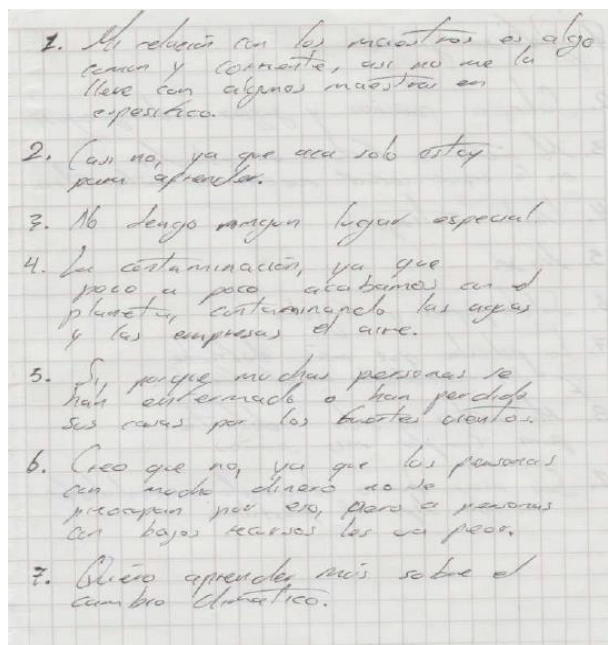 1. Mi relación con los maestros es algo
comun y corriente, asi no me la
lleve con algunos maestros en
espesifico.
2. Casi no, ya que aca solo estoy
para aprender.
3. No tengo ningun lugar especial
4. La contaminación, ya que
poco a poco acabamos con el
planeta, contaminando las aguas
y las empresas el aire.
5. Si, porque muchas personas se
han enfermado o han perdido
sus casas por los fuertes vientos.
6. Creo que no, ya que las personas
con mucho dinero no se
preocupan por eso, pero a personas
con bajos recursos les va peor.
7. Quiero aprender más sobre el
cambio climatico.